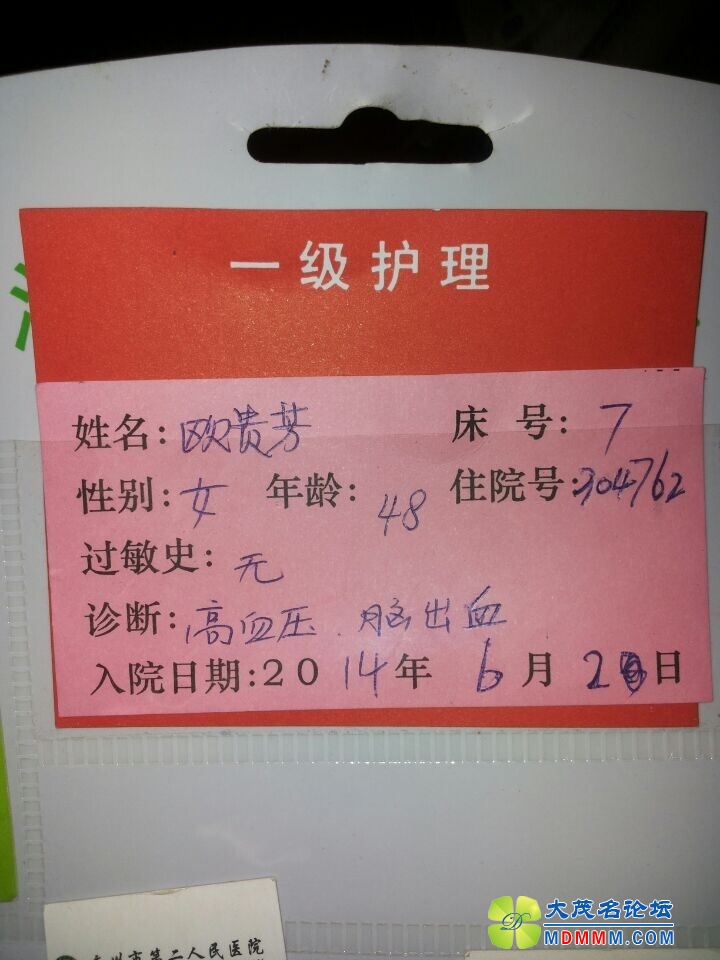 一级护理
姓名: 欧贵芳 床号: 7
性别: 女 年龄: 48 住院号: 304762
过敏史: 无
诊断: 高血压 脑出血
入院日期: 2014年 6月 2日
州市第二人民医院
大茂名论坛
MDMMM.COM